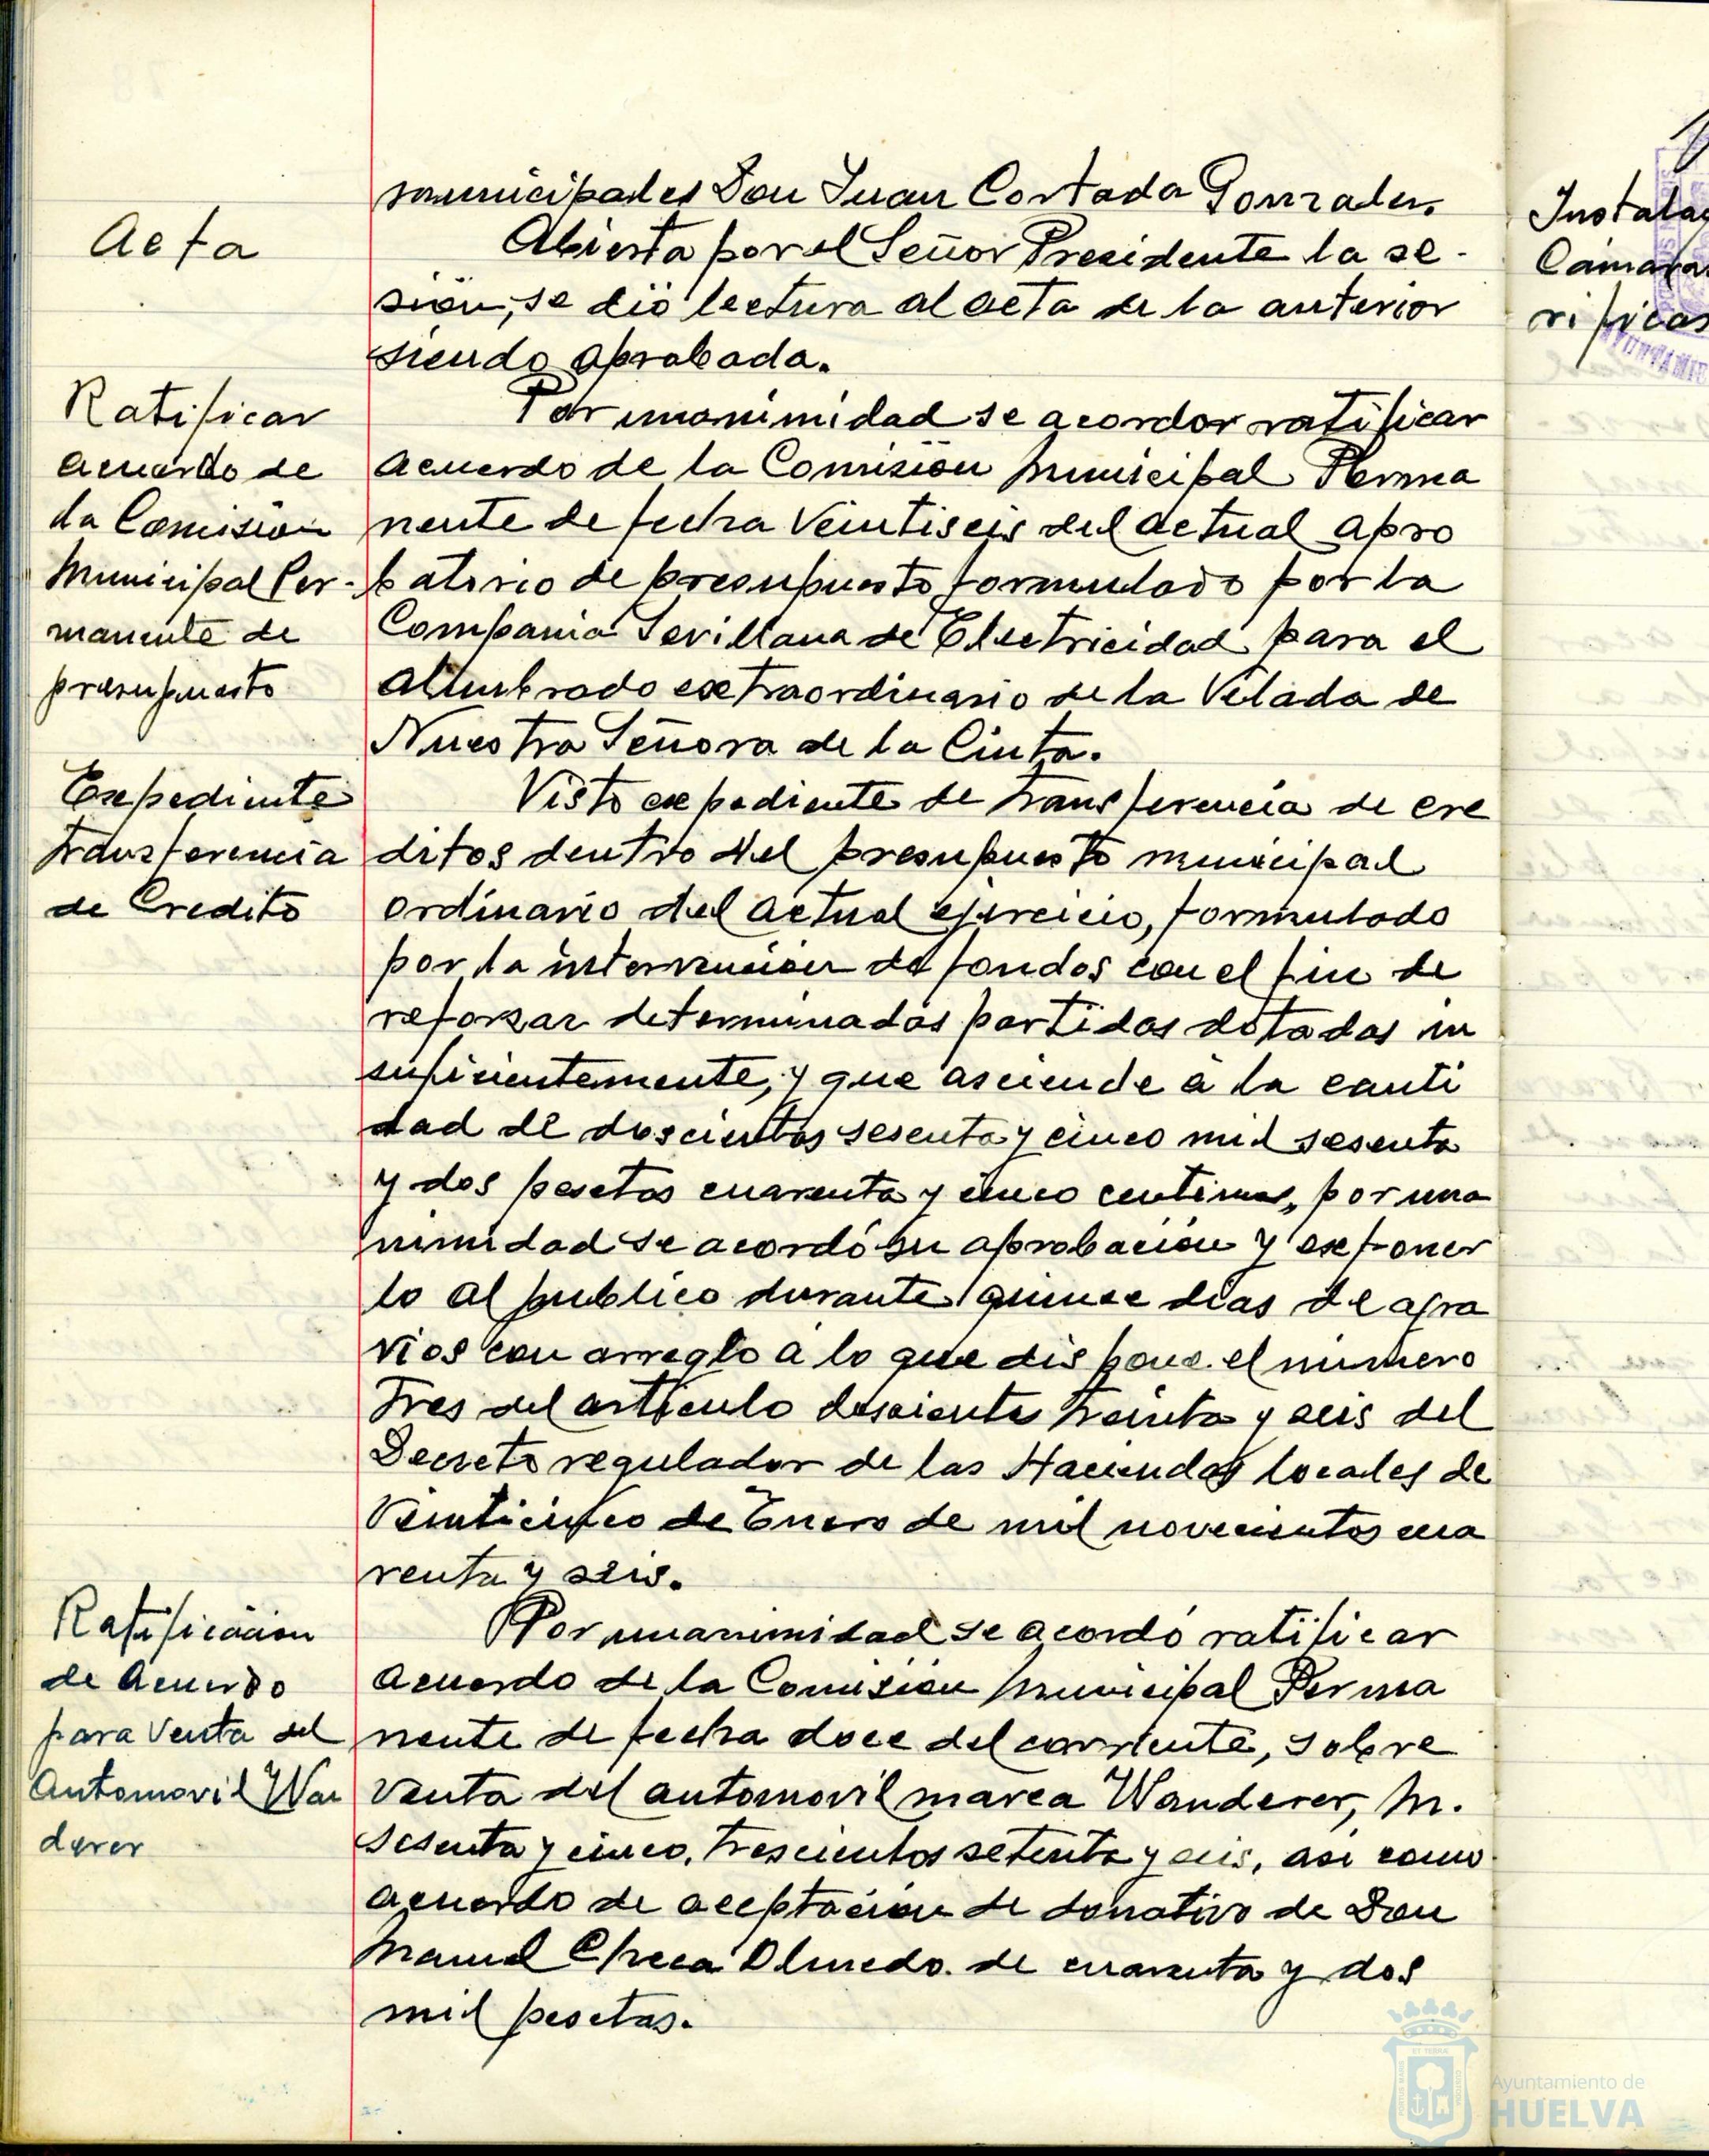 municipales Don Juan Cortada Gonzalez.
Acta
Abierta por el Señor Presidente la se-
sion, se dió lectura al acta de la anterior
siendo aprobada.
Ratificar
acuerdo de
la Comisión
Municipal Per-
manente de
presupuesto
Por unanimidad se acordor ratificar
acuerdo de la Comision Municipal Perma
nente de fecha Veintiseis del actual apro
batorio de presupuesto formulado por la
Compania Sevillana de Electricidad para el
alumbrado extraordinario de la Velada de
Nuestra Señora de la Cinta.
Expediente
transferencia
de Credito
Visto expediente de transferencia de cre
ditos dentro del presupuesto municipal
ordinario del actual ejercicio, formulado
por la intervencion de fondos con el fin de
reforzar determinadas partidas dotadas in
suficientemente, y que asciende a la canti
dad de doscientas sesenta y cinco mil sesenta
y dos pesetas cuarenta y cinco centimos, por una
nimidad se acordó su aprobación y exponer
lo al publico durante quince dias de agra
vios con arreglo a lo que dispone el número
Tres del artículo doscientos treinta y seis del
Decreto regulador de las Haciendas locales de
Veinticinco de Enero de mil novecientos cua
renta y seis.
Ratificacion
de Acuerdo
para Venta del
Automovil Wan
derer
Por unanimidad se acordó ratificar
acuerdo de la Comision Municipal Perma
nente de fecha doce del corriente, sobre
Venta del automovil marca Wanderer, M.
sesenta y cinco, trescientos setenta y seis, asi como
acuerdo de aceptación de donativo de Don
Manuel Checa Olmedo. de cuarenta y dos
mil pesetas.
Instalac
Camara
rificas
Ayuntamiento de
HUELVA